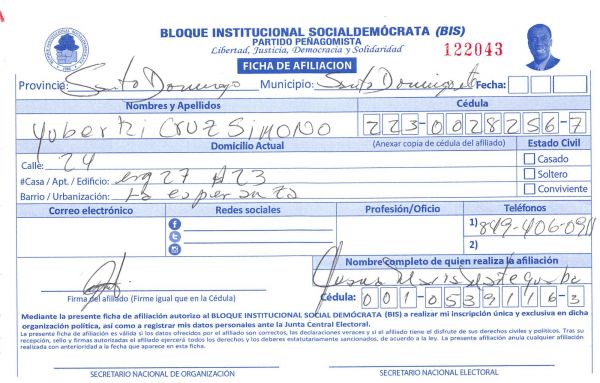 BLOQUE INSTITUCIONAL SOCIALDEMÓCRATA (BIS)
PARTIDO PEÑAGOMISTA
Libertad, Justicia, Democracia y Solidaridad
122043
FICHA DE AFILIACION
Provincia: Santo Domingo Municipio: Santo Domingo Fecha:
Nombres y Apellidos Cédula
Yubertzi CRUZ SIMONO 223-0028256-7
Domicilio Actual (Anexar copia de cédula del afiliado) Estado Civil
Calle: 24 Casado
#Casa / Apt. / Edificio: esq 27 #23 Soltero
Barrio / Urbanización: La esperanza Conviviente
Correo electrónico Redes sociales Profesión/Oficio Teléfonos
1) 849-406-0911
2)
Nombre completo de quien realiza la afiliación
Jesus
Firma del afiliado (Firme igual que en la Cédula) Cédula: 001-0539116-3
Mediante la presente ficha de afiliación autorizo al BLOQUE INSTITUCIONAL SOCIAL DEMÓCRATA (BIS) a realizar mi inscripción única y exclusiva en dicha
organización política, así como a registrar mis datos personales ante la Junta Central Electoral.
La presente ficha de afiliación es válida si los datos ofrecidos por el afiliado son correctos, las declaraciones veraces y si el titular tiene el disfrute de sus derechos civiles y políticos. Tras su
recepción, sello y firmas autorizadas el afiliado ejercerá todos los derechos y los deberes estatutariamente sancionados, de acuerdo a la ley. La presente afiliación anula cualquier afiliación
realizada con anterioridad a la fecha que aparece en esta ficha.
SECRETARIO NACIONAL DE ORGANIZACIÓN SECRETARIO NACIONAL ELECTORAL